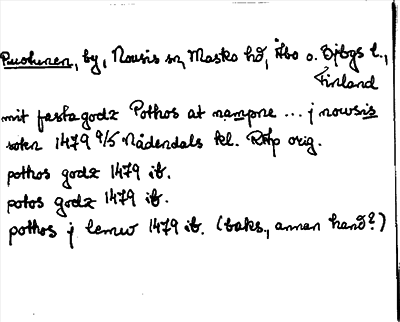 Puohinen, by, Nousis sn, Masko hd, Åbo o. Bjbgs l.,
Finland
mit fasta godz Pothos at nampne ... j nowsis
soken 1479 9/5 Nådendals kl. RAp orig.
pothos godz 1479 ib.
potos godz 1479 ib.
pothos j lemo 1479 ib. (baks., annan hand?)